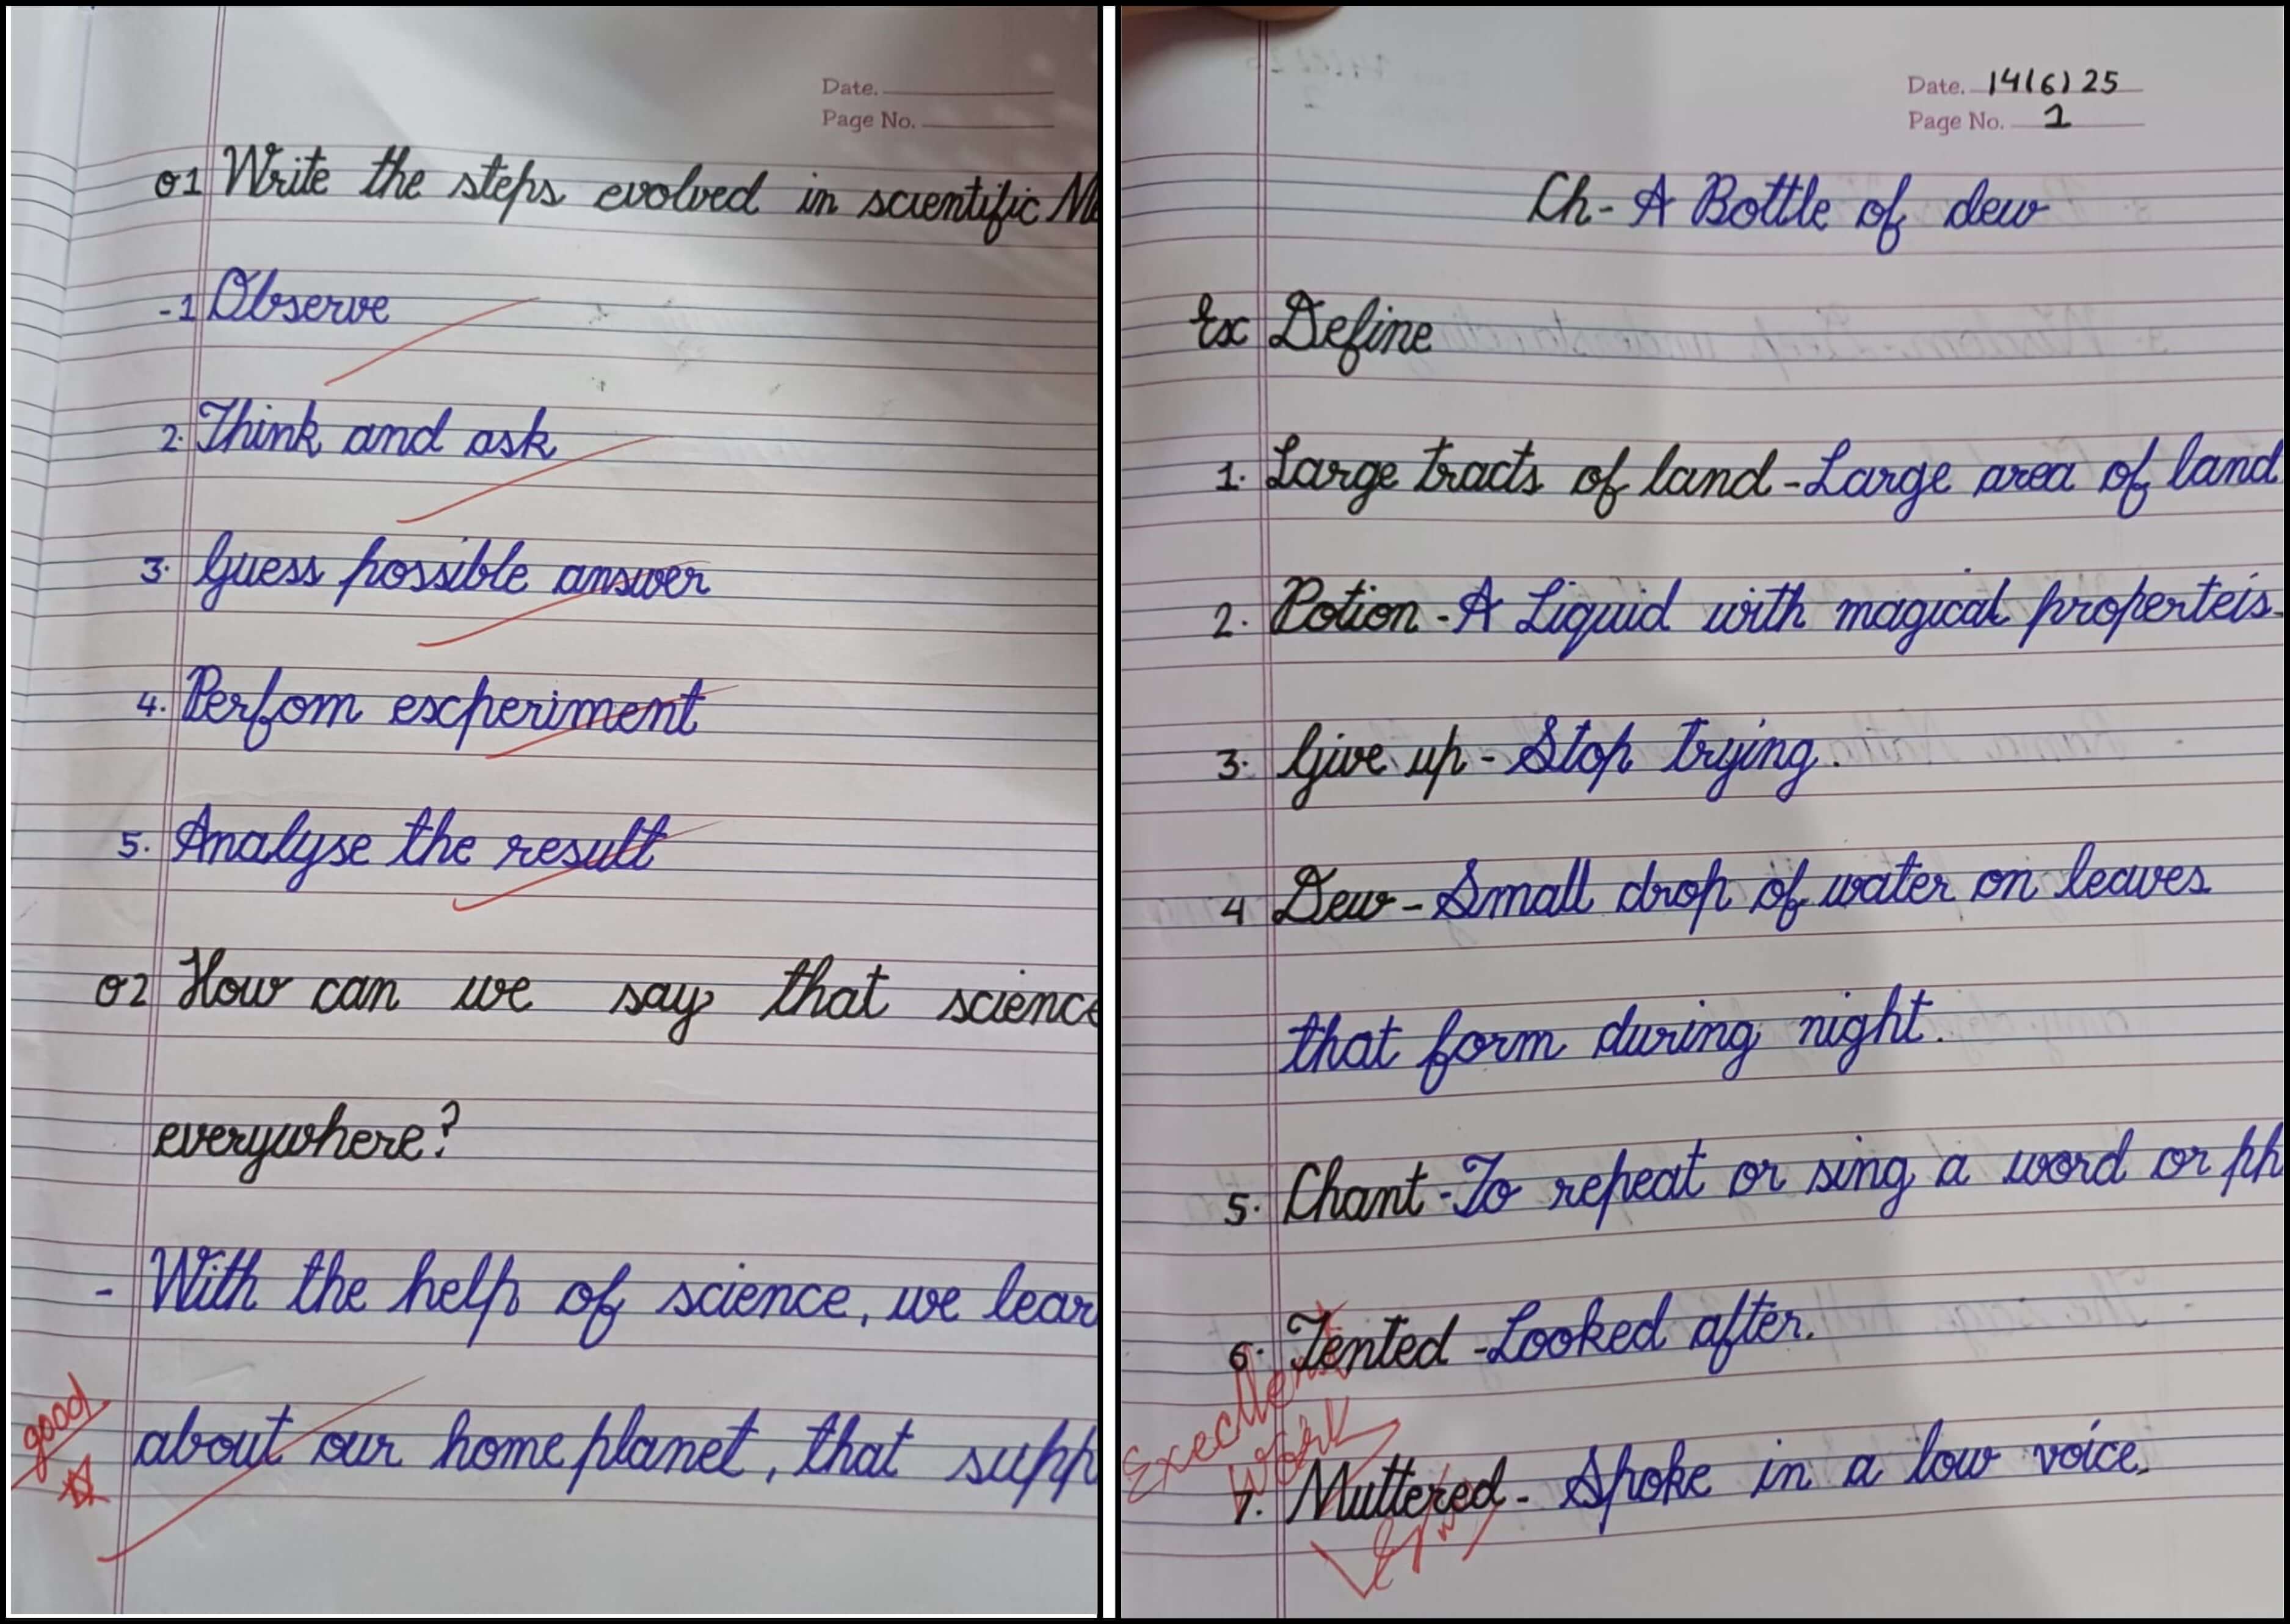 Date.
Page No.
01 Write the steps evolved in scientific
-1 Observe
2. Think and ask
3. Guess possible answer
4. Perfom escperiment
5. Analyse the result
02 How can we say that science
everywhere?
- With the help of science, we lear
good
about our home planet, that supp
Date. 14(6)25
Page No. 1
Ch- A Bottle of dew
Ex Define
1. Large tracts of land - Large area of land
2. Potion - A Liquid with magical properteis.
3. Give up - Stop trying.
4 Dew - Small drop of water on leaves
that form during night.
5. Chant - To repeat or sing a word or ph
6. Tented - Looked after.
Execllent
Work
7. Muttered - Spoke in a low voice.